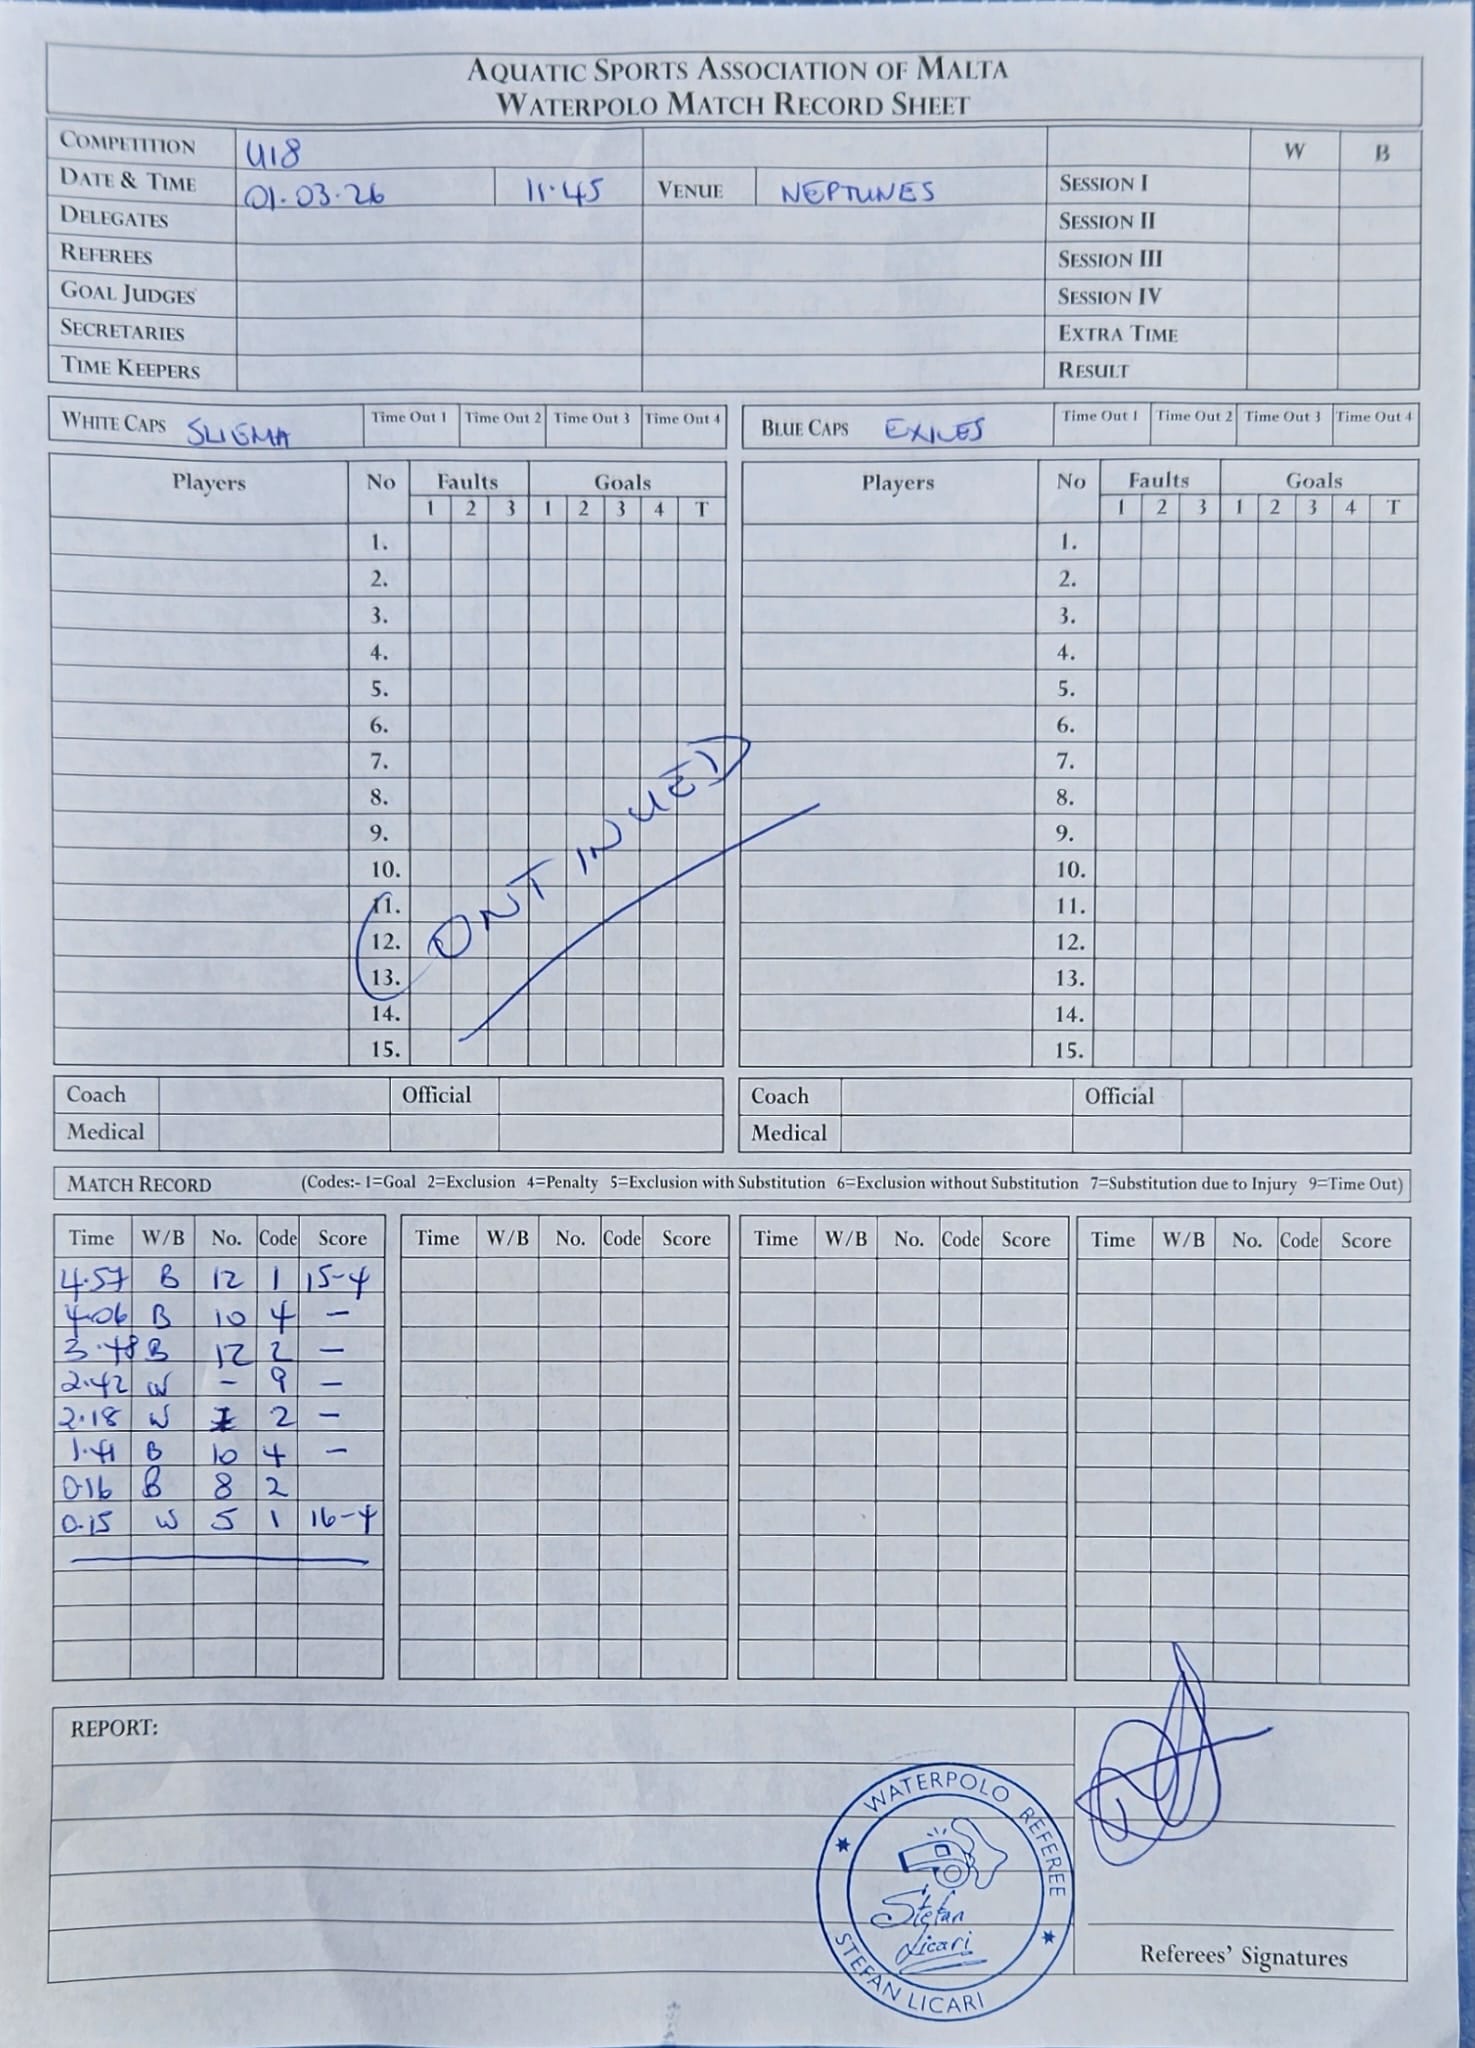 AQUATIC SPORTS ASSOCIATION OF MALTA
WATERPOLO MATCH RECORD SHEET
COMPETITION U18 W B
DATE & TIME 01.03.26 11.45 VENUE NEPTUNES SESSION I
DELEGATES SESSION II
REFEREES SESSION III
GOAL JUDGES SESSION IV
SECRETARIES EXTRA TIME
TIME KEEPERS RESULT
WHITE CAPS SLIEMA Time Out 1 Time Out 2 Time Out 3 Time Out 4
BLUE CAPS EXILES Time Out 1 Time Out 2 Time Out 3 Time Out 4
Players No Faults Goals
1 2 3 1 2 3 4 T
1.
2.
3.
4.
5.
6.
7.
8.
9.
10.
11.
12.
13.
14.
15.
CONTINUED
Players No Faults Goals
1 2 3 1 2 3 4 T
1.
2.
3.
4.
5.
6.
7.
8.
9.
10.
11.
12.
13.
14.
15.
Coach Official
Medical
Coach Official
Medical
MATCH RECORD (Codes:- 1=Goal 2=Exclusion 4=Penalty 5=Exclusion with Substitution 6=Exclusion without Substitution 7=Substitution due to Injury 9=Time Out)
Time W/B No. Code Score Time W/B No. Code Score Time W/B No. Code Score Time W/B No. Code Score
4.57 B 12 1 15-4
4.06 B 10 4 -
3.48 B 12 2 -
2.42 W - 9 -
2.18 W 2 -
1.41 B 10 4 -
0.16 B 8 2
0.15 W 5 1 16-4
REPORT:
WATERPOLO REFEREE
Stefan
Licari
STEFAN LICARI
Referees' Signatures